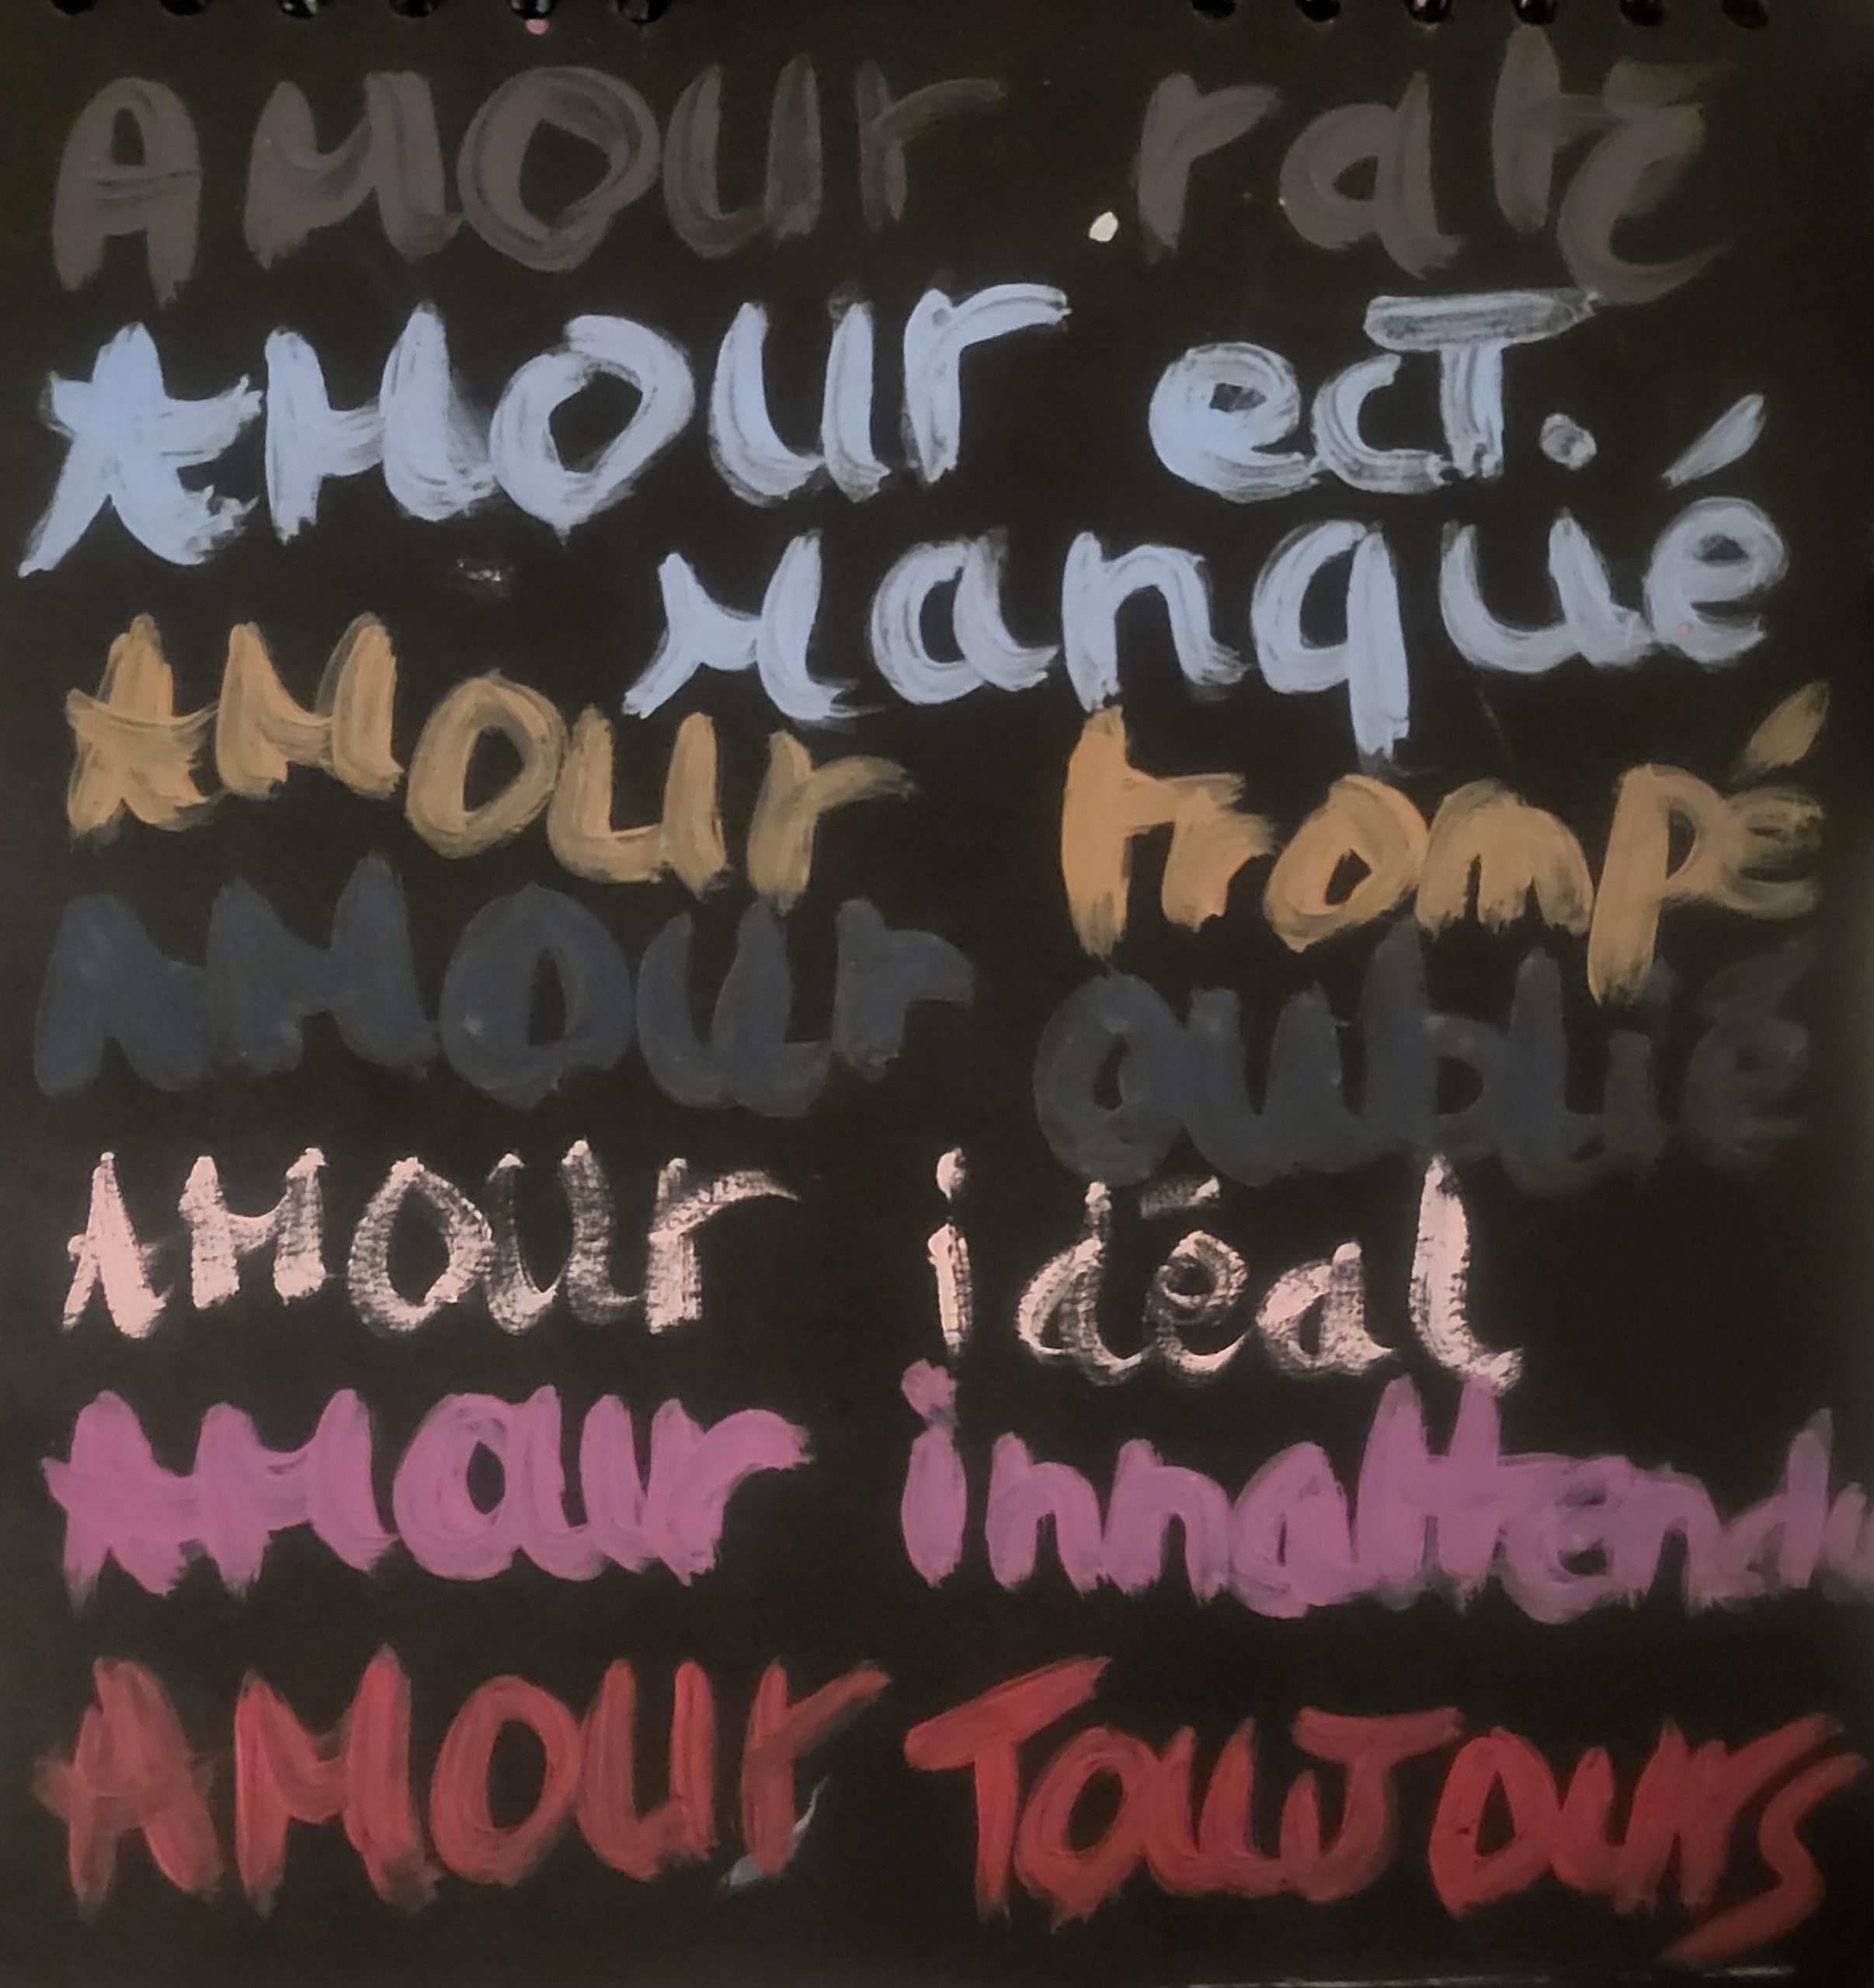 AMOUr raté
AMOUr ecT.
Manqué
AMOUr trompé
AMOUr oublié
AMOUr idéal
AMOUr innattendu
AMOUr TOUJOUrs